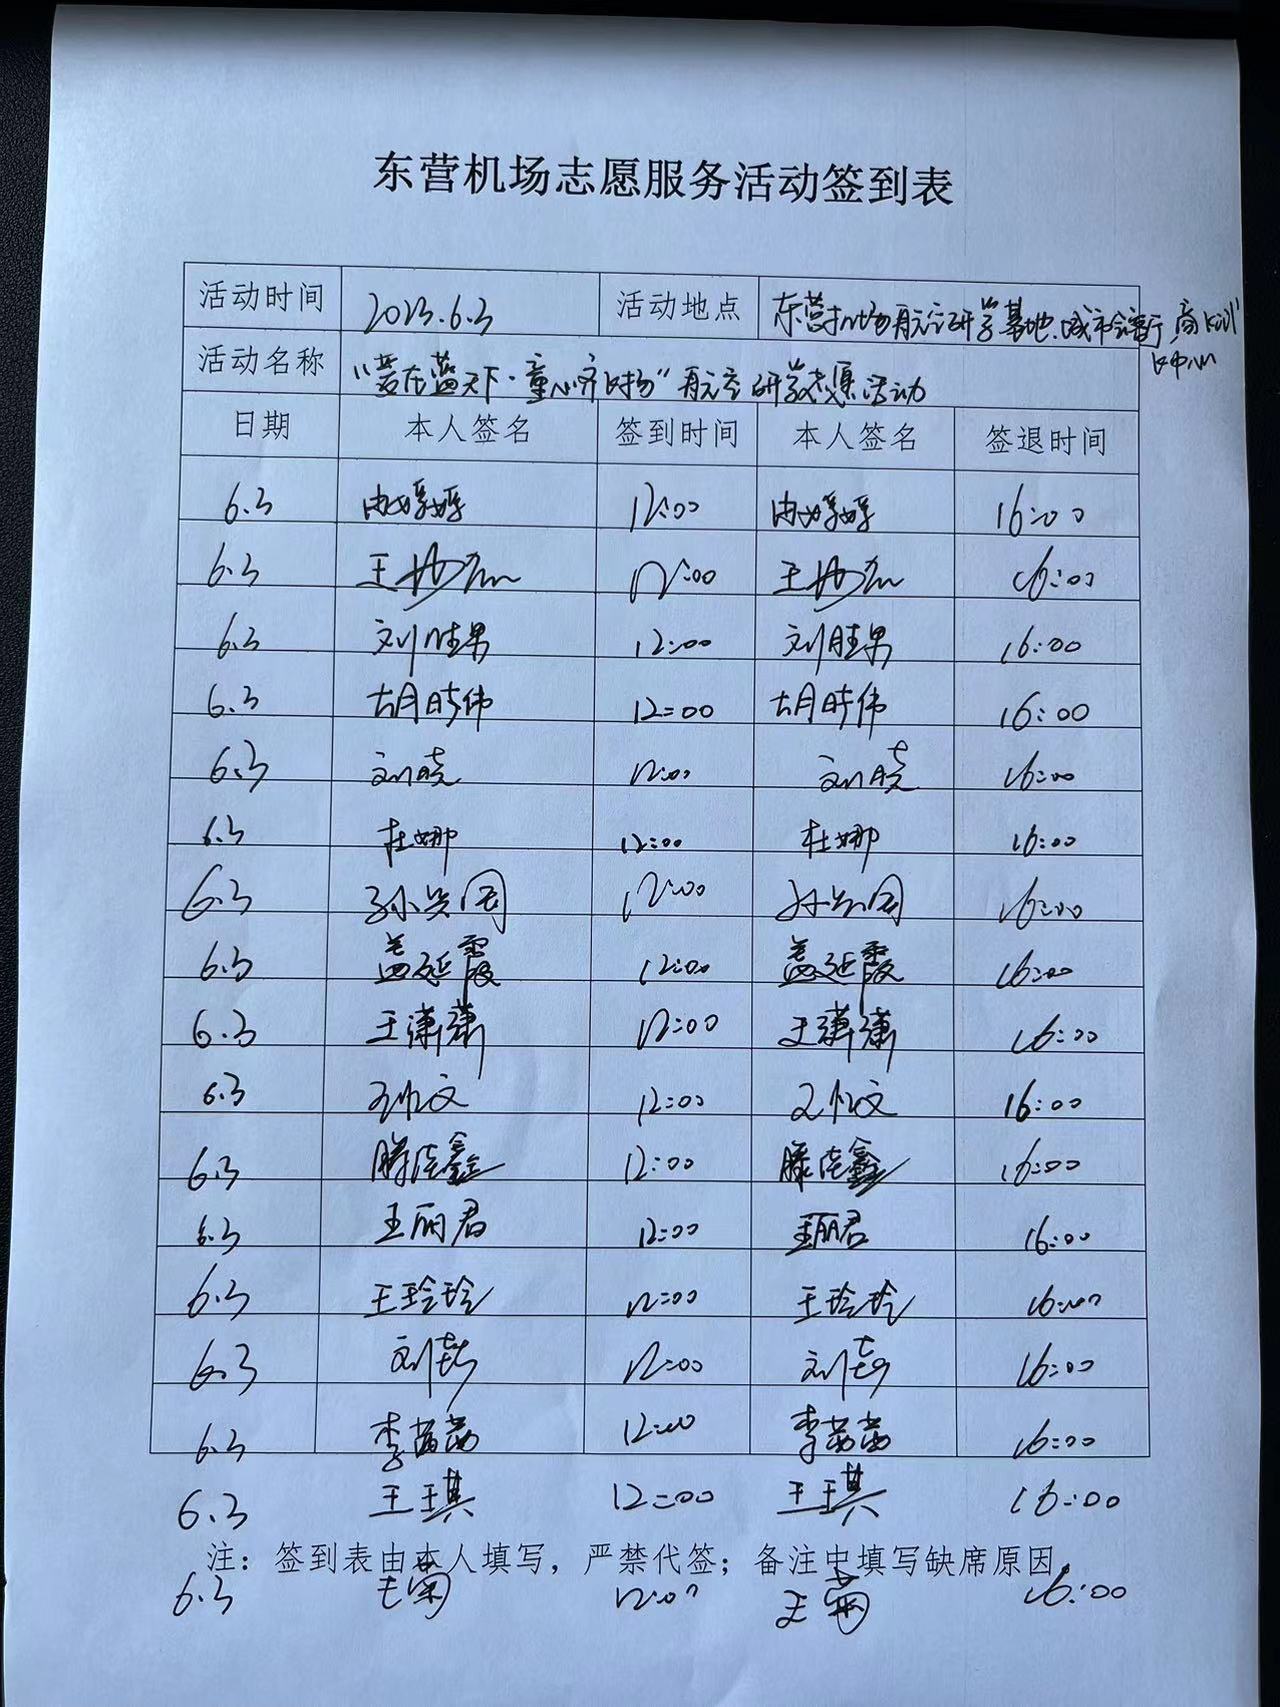 东营机场志愿服务活动签到表
活动时间 2023.6.3 活动地点 东营机场航空研学基地、城市会客厅,
活动名称 “蓝天下·童心齐飞扬”航空研学志愿活动
日期 本人签名 签到时间 本人签名 签退时间
6.3 由婷婷 12:00 由婷婷 16:00
6.3 王 12:00 王 16:00
6.3 刘胜男 12:00 刘胜男 16:00
6.3 胡晓伟 12:00 胡晓伟 16:00
6.3 刘晓 12:00 刘晓 16:00
6.3 杜娜 12:00 杜娜 16:00
6.3 孙 12:00 孙 16:00
6.3 盖延霞 12:00 盖延霞 16:00
6.3 王潇潇 12:00 王潇潇 16:00
6.3 文 12:00 文 16:00
6.3 滕 鑫 12:00 滕 鑫 16:00
6.3 王丽君 12:00 王丽君 16:00
6.3 王玲玲 12:00 王玲玲 16:00
6.3 刘 12:00 刘 16:00
6.3 李茜茜 12:00 李茜茜 16:00
6.3 王琪 12:00 王琪 16:00
注:签到表由本人填写,严禁代签;备注中填写缺席原因。
6.3 王菊 12:00 王菊 16:00